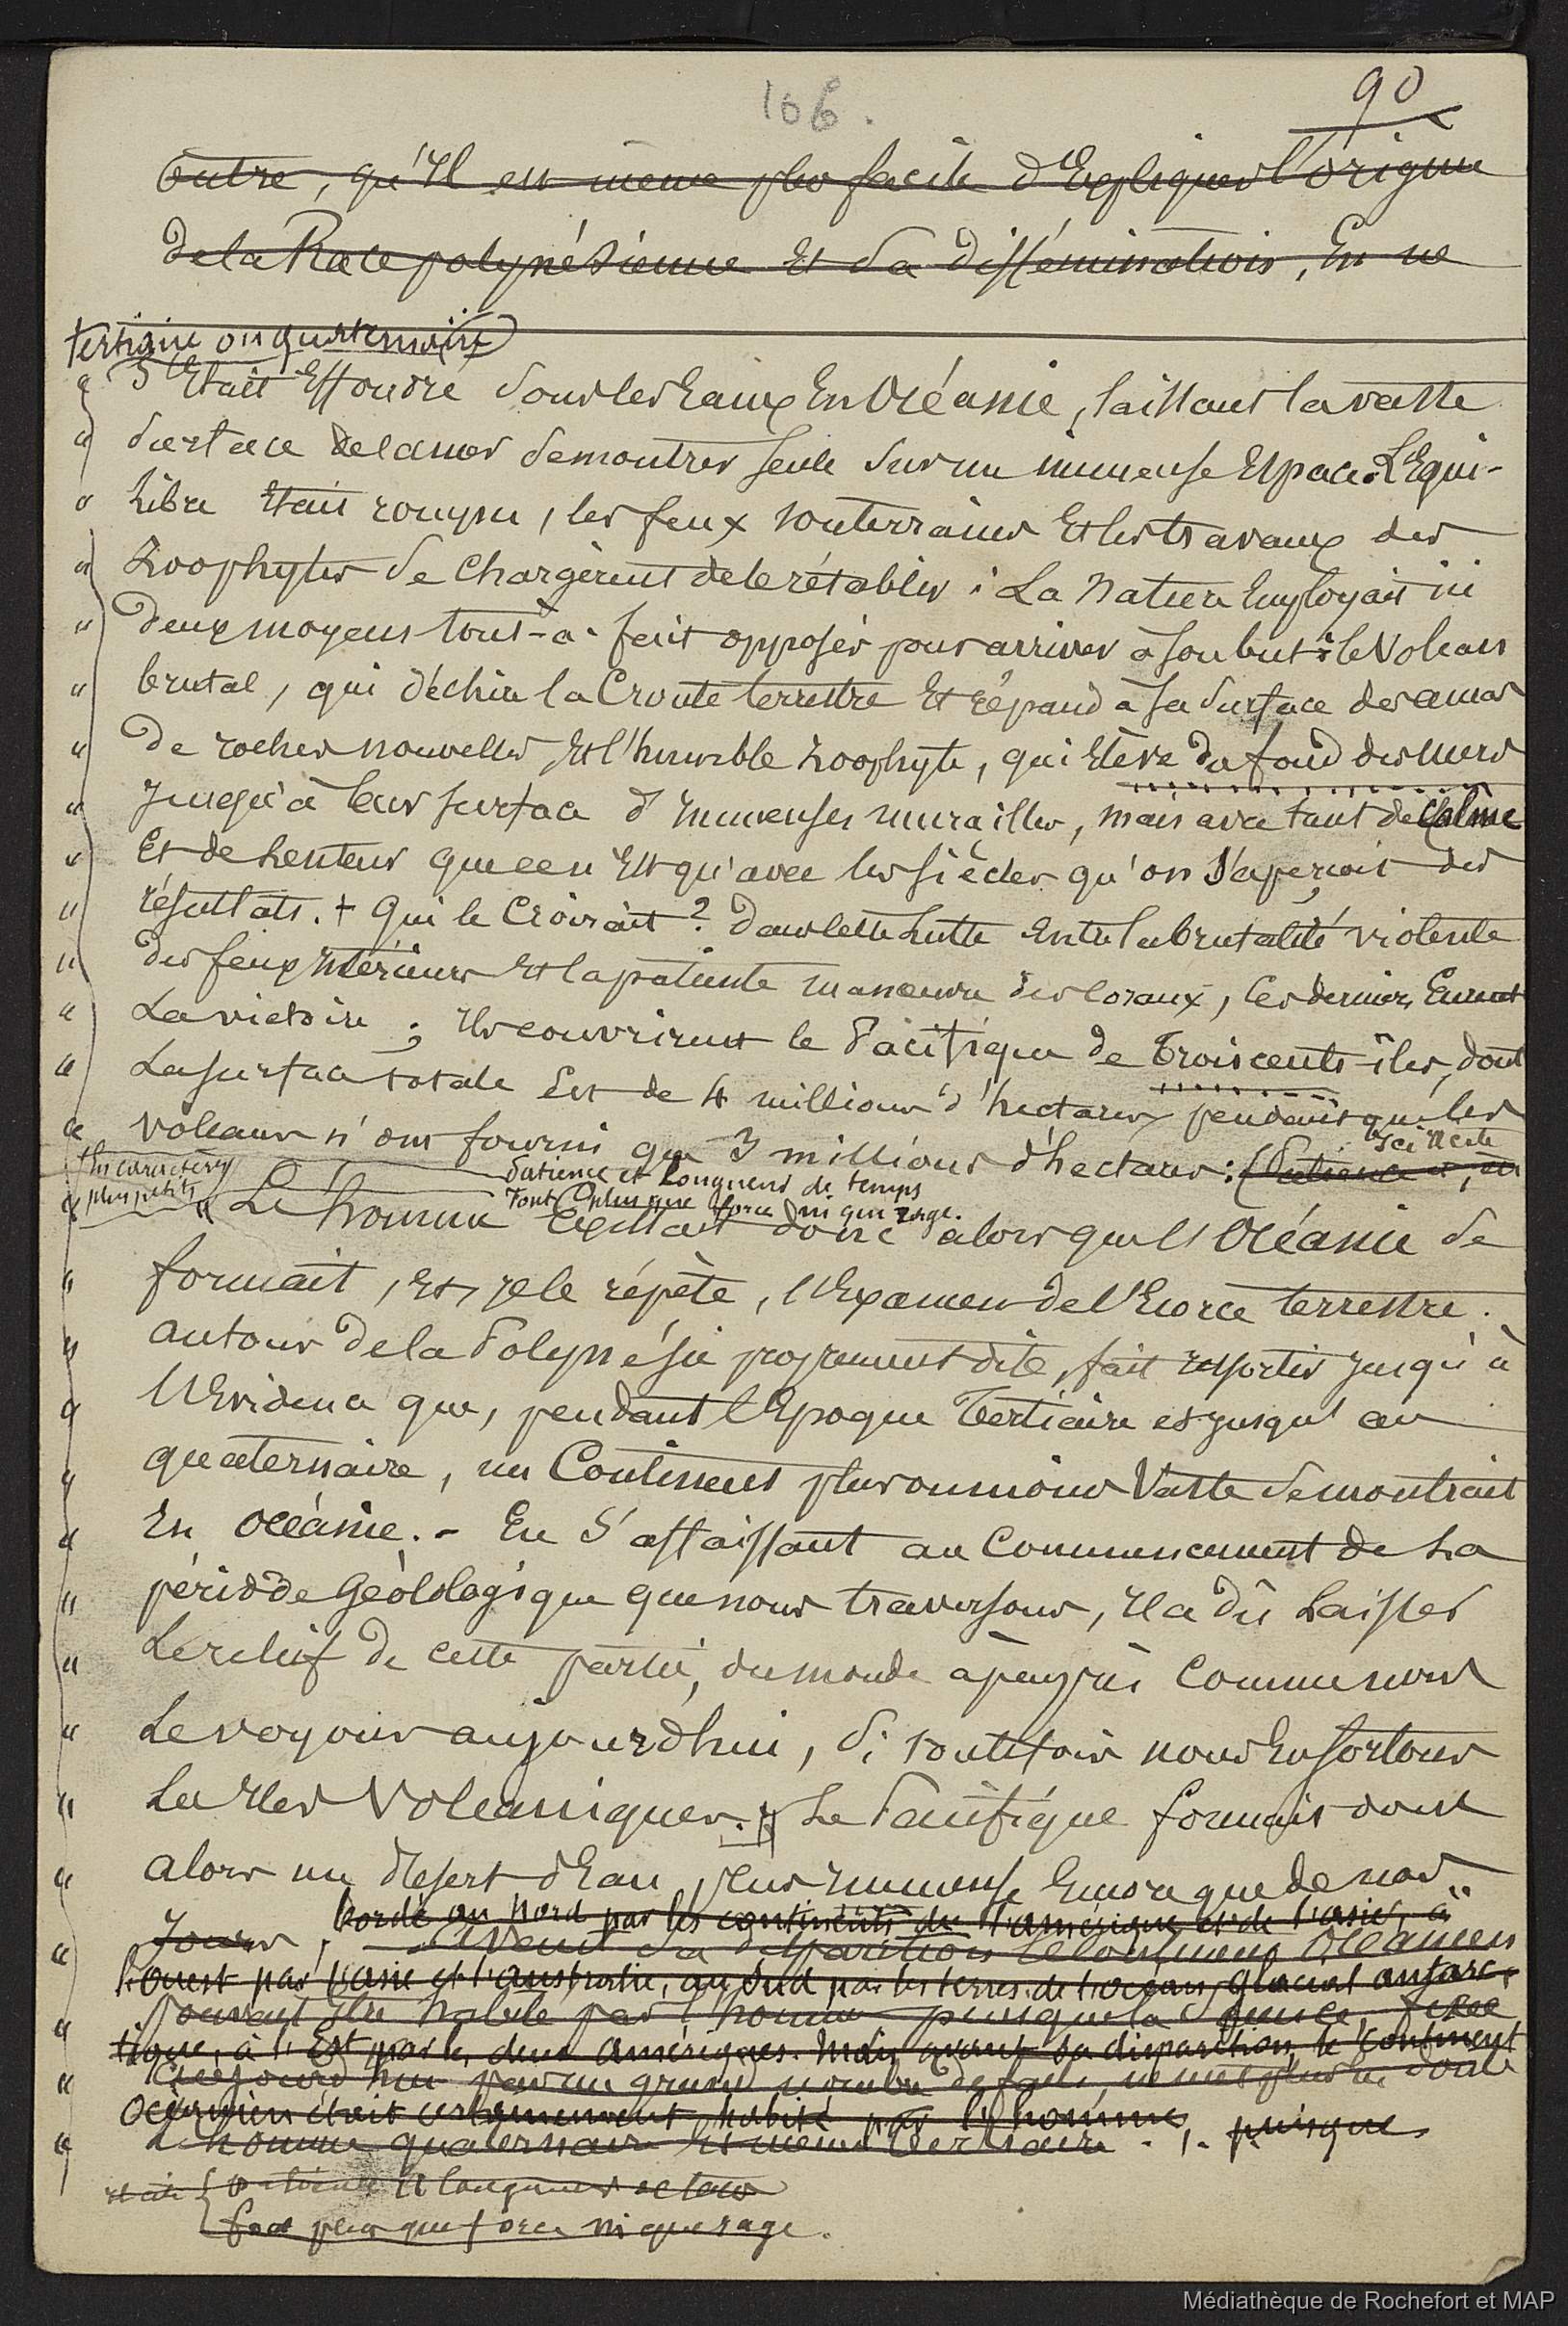 106.
90
Outre, qu'Il est même plus facile d'Expliquer l'origine
de la Race polynésienne Et sa disséminations, En ne
tertiaire ou quaternaire
" S'Etait Effondré sous les Eaux En Océanie, laissant la vaste
" surface de la mer se montrer seule sur un immense Espace. L'Equi-
" libre Etait rompu, les feux souterrains Et les travaux des
" Zoophytes se chargèrent de le rétablir : La Nature Employait ici
" deux moyens tout-à-fait opposés pour arriver à son but : le Volcan
" brutal, qui déchire la Croute terrestre Et répand à sa surface des amas
" de roches nouvelles, Et l'humble zoophyte, qui Elève du fond des mers
" jusqu'à leur surface d'Immenses murailles, mais avec tant de Calme
" Et de lenteur que ce n'Est qu'avec les siècles qu'on s'aperçoit des
" résultats. + Qui le Croirait ? Dans cette lutte Entre la brutalité violente
" des feux Intérieurs Et la patiente manœuvre des Coraux, Ces derniers Eurent
" La victoire ; Ils couvrirent le Pacifique de Trois cents îles, dont
" La surface totale Est de 4 millions d'hectares pendant que les
" Volcans n'ont fourni que 3 millions d'hectares : (Patience et, etc
Ici il cite
En caractères
plus petits
Patience et Longueur de temps
Font plus que force ni que rage.
" " L'homme Existait donc alors que l'Océanie se
" formait, Et, je le répète, l'Examen de l'Ecorce terrestre
" autour de la Polynésie proprement dite, fait ressortir jusqu'à
" l'Evidence que, pendant l'Epoque Tertiaire et jusqu'au
" quaternaire, un Continent plus ou moins Vaste se montrait
" En Océanie. - En s'affaissant au Commencement de La
" période Géologique que nous traversons, Il a dû Laisser
" Le relief de cette partie du monde à peu près Comme nous
" Le voyons aujourd'hui, si toutefois nous En sortons
" Les Iles Volcaniques. Le Pacifique formait donc
" alors un désert d'Eau plus Immense Encore que de nos
bordé au Nord par les continents de l'amérique et de l'asie, à
" Jours, avant sa disparition le Continent Océanien
l'ouest par l'asie et l'australie, au sud par les terres de l'océan glacial antarc-
" pouvait être habité par l'homme puisque la science, fixée
tique, à l'Est par les deux Amériques. Mais avant sa disparition, le Continent
" Aujourd'hui par un grand nombre de faits, ne met plus en doute
Océanien était certainement habité par l'homme, puisque
" L'homme quaternaire Et même tertiaire.
Patience et longueur de temps
font plus que force ni que rage.
Médiathèque de Rochefort et MAP